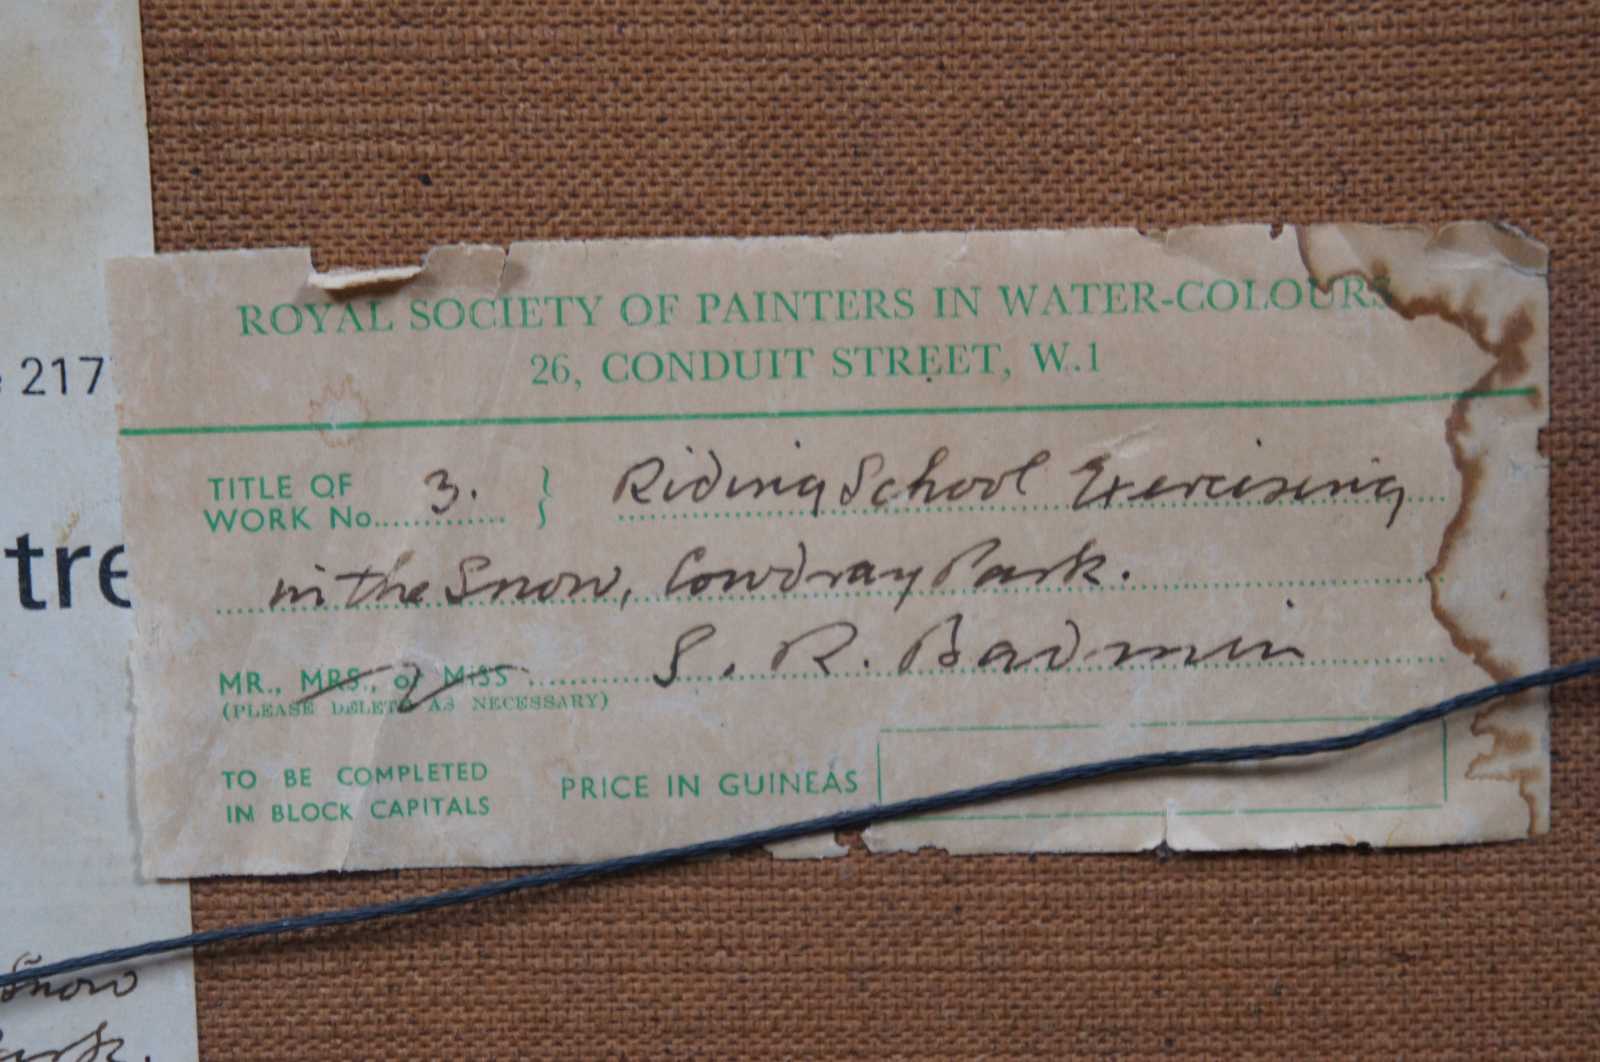 ROYAL SOCIETY OF PAINTERS IN WATER-COLOURS
26, CONDUIT STREET, W.1
TITLE OF
WORK No. 3. } Riding School Exercising
in the Snow, Cowdray Park.
MR., MRS., or MISS S. R. Badmin
(PLEASE DELETE AS NECESSARY)
TO BE COMPLETED
IN BLOCK CAPITALS
PRICE IN GUINEAS
217
tre
Snow